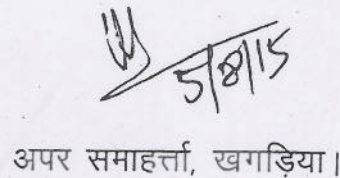 5/8/15
अपर समाहर्त्ता, खगड़िया।